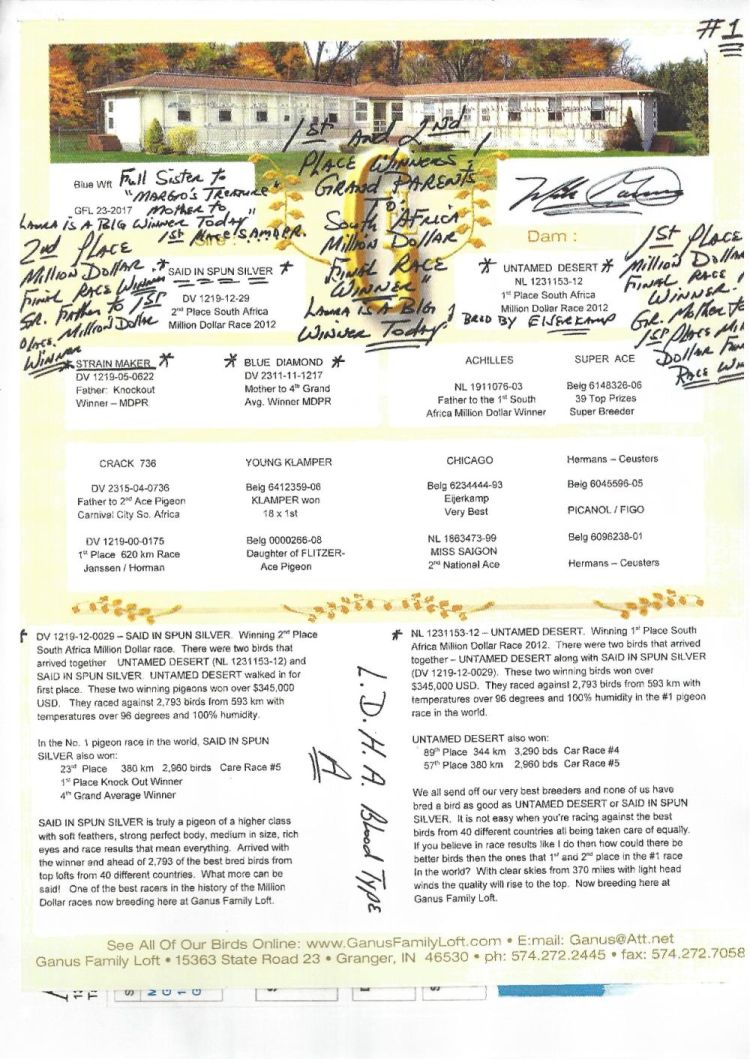 #1
1st And 2nd
Place Winners!
Grand Parents
To:
South Africa
Million Dollar
Final Race
Winner"
Laura is A Big
Winner Today
Blue Wft Full Sister to
"Margo's Treasure"
GFL 23-2017 Mother to
Laura is A Big Winner Today"
1st Place S.A.M.D.P.R.
2nd Place
Million Dollar
Final Race Winner
Gr. Father to 1st
Place Million Dollar
Winner
Dam :
1st Place
Million Dollar
Final Race
Winner.
Gr. Mother to
1st Place Mil
Dollar
Race Win
* SAID IN SPUN SILVER *
DV 1219-12-29
2nd Place South Africa
Million Dollar Race 2012
* UNTAMED DESERT *
NL 1231153-12
1st Place South Africa
Million Dollar Race 2012
Bred By Eijerkamp
STRAIN MAKER *
DV 1219-05-0622
Father: Knockout
Winner – MDPR
* BLUE DIAMOND *
DV 2311-11-1217
Mother to 4th Grand
Avg. Winner MDPR
ACHILLES
NL 1911076-03
Father to the 1st South
Africa Million Dollar Winner
SUPER ACE
Belg 6148326-06
39 Top Prizes
Super Breeder
CRACK 736
DV 2315-04-0736
Father to 2nd Ace Pigeon
Carnival City So. Africa
DV 1219-00-0175
1st Place 620 km Race
Janssen / Horman
YOUNG KLAMPER
Belg 6412359-06
KLAMPER won
18 x 1st
Belg 0000266-08
Daughter of FLITZER-
Ace Pigeon
CHICAGO
Belg 6234444-93
Eijerkamp
Very Best
NL 1863473-99
MISS SAIGON
2nd National Ace
Hermans – Ceusters
Belg 6045596-05
PICANOL / FIGO
Belg 6096238-01
Hermans – Ceusters
DV 1219-12-0029 – SAID IN SPUN SILVER. Winning 2nd Place
South Africa Million Dollar race. There were two birds that
arrived together UNTAMED DESERT (NL 1231153-12) and
SAID IN SPUN SILVER. UNTAMED DESERT walked in for
first place. These two winning pigeons won over $345,000
USD. They raced against 2,793 birds from 593 km with
temperatures over 96 degrees and 100% humidity.
In the No. 1 pigeon race in the world, SAID IN SPUN
SILVER also won:
23rd Place 380 km 2,960 birds Care Race #5
1st Place Knock Out Winner
4th Grand Average Winner
SAID IN SPUN SILVER is truly a pigeon of a higher class
with soft feathers, strong perfect body, medium in size, rich
eyes and race results that mean everything. Arrived with
the winner and ahead of 2,793 of the best bred birds from
top lofts from 40 different countries. What more can be
said! One of the best racers in the history of the Million
Dollar races now breeding here at Ganus Family Loft.
L.D.H.A. Blood Type
A
* NL 1231153-12 – UNTAMED DESERT. Winning 1st Place South
Africa Million Dollar Race 2012. There were two birds that
arrived together – UNTAMED DESERT along with SAID IN SPUN SILVER
(DV 1219-12-0029). These two winning birds won over
$345,000 USD. They raced against 2,793 birds from 593 km with
temperatures over 96 degrees and 100% humidity in the #1 pigeon
race in the world.
UNTAMED DESERT also won:
89th Place 344 km 3,290 bds Car Race #4
57th Place 380 km 2,960 bds Car Race #5
We all send off our very best breeders and none of us have
bred a bird as good as UNTAMED DESERT or SAID IN SPUN
SILVER. It is not easy when you're racing against the best
birds from 40 different countries all being taken care of equally.
If you believe in race results like I do then how could there be
better birds then the ones that 1st and 2nd place in the #1 race
In the world? With clear skies from 370 miles with light head
winds the quality will rise to the top. Now breeding here at
Ganus Family Loft.
See All Of Our Birds Online: www.GanusFamilyLoft.com • E:mail: Ganus@Att.net
Ganus Family Loft • 15363 State Road 23 • Granger, IN 46530 • ph: 574.272.2445 • fax: 574.272.7058